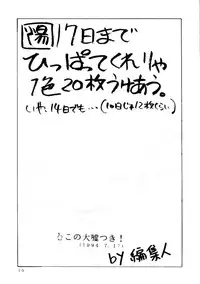 陽 17日まで
ひっぱってくれりゃ
1色20枚うけあう。
いや、14日でも…(10日じゃ12枚くらい)
この大嘘つき!
(1994.7.17)
by 編集人